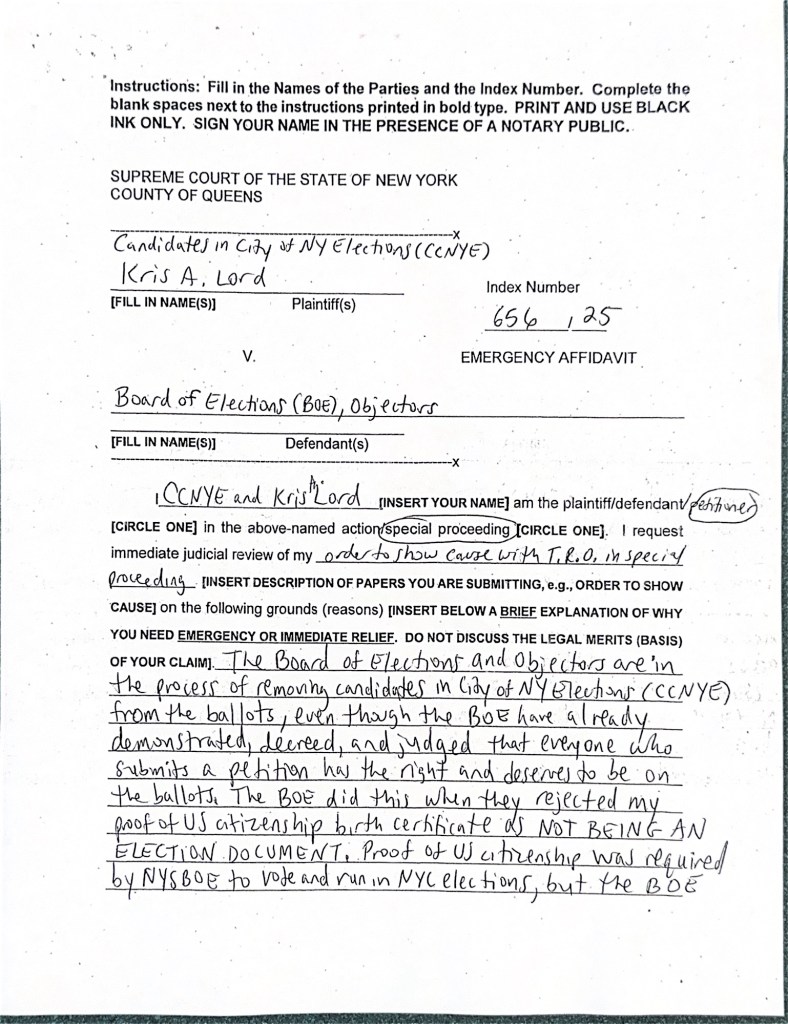 Instructions: Fill in the Names of the Parties and the Index Number. Complete the
blank spaces next to the instructions printed in bold type. PRINT AND USE BLACK
INK ONLY. SIGN YOUR NAME IN THE PRESENCE OF A NOTARY PUBLIC.
SUPREME COURT OF THE STATE OF NEW YORK
COUNTY OF QUEENS
-----------------------------------------------------------------------X
Candidates in City of NY Elections (CCNYE)
Kris A. Lord
[FILL IN NAME(S)] Plaintiff(s)
Index Number
656 / 25
V.
EMERGENCY AFFIDAVIT
Board of Elections (BOE), Objectors
[FILL IN NAME(S)] Defendant(s)
-----------------------------------------------------------------------X
I, CCNYE and Kris A. Lord [INSERT YOUR NAME] am the plaintiff/defendant/petitioner
[CIRCLE ONE] in the above-named action/special proceeding [CIRCLE ONE]. I request
immediate judicial review of my order to show cause with T.R.O. in special
proceeding [INSERT DESCRIPTION OF PAPERS YOU ARE SUBMITTING, e.g., ORDER TO SHOW
CAUSE] on the following grounds (reasons) [INSERT BELOW A BRIEF EXPLANATION OF WHY
YOU NEED EMERGENCY OR IMMEDIATE RELIEF. DO NOT DISCUSS THE LEGAL MERITS (BASIS)
OF YOUR CLAIM]. The Board of Elections and Objectors are in
the process of removing candidates in City of NY Elections (CCNYE)
from the ballots, even though the BOE have already
demonstrated, decreed, and judged that everyone who
submits a petition has the right and deserves to be on
the ballots. The BOE did this when they rejected my
proof of US citizenship birth certificate as NOT BEING AN
ELECTION DOCUMENT. Proof of US citizenship was required
by NYSBOE to vote and run in NYC elections, but the BOE